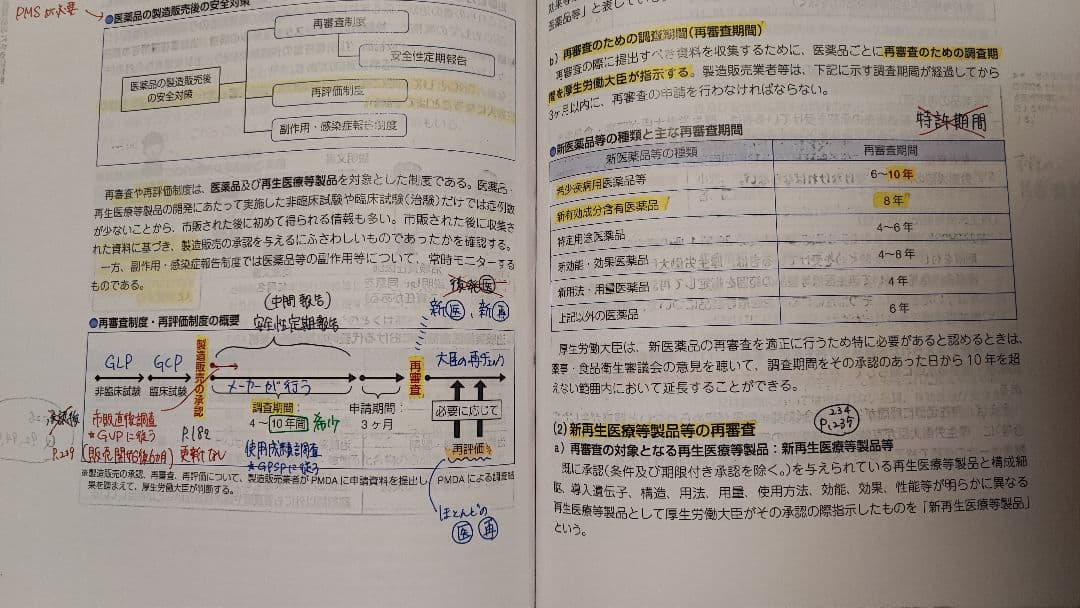 PMS
●医薬品の製造販売後の安全対策
再審査制度
安全性定期報告
医薬品の製造販売後
の安全対策
再評価制度
副作用・感染症報告制度
再審査や再評価制度は、医薬品及び再生医療等製品を対象とした制度である。医薬品・
再生医療等製品の開発にあたって実施した非臨床試験や臨床試験(治験)だけでは症例数
が少ないことから、市販された後に初めて得られる情報も多い。市販された後に収集さ
れた資料に基づき、製造販売の承認を与えるにふさわしいものであったかを確認する。
一方、副作用・感染症報告制度では医薬品等の副作用等について、常時モニターする
ものである。
後発医
(中間報告)
新医、新再
安全性定期報告
●再審査制度・再評価制度の概要
GLP
GCP
製造販売の承認
再審査
大臣の再チェック
非臨床試験
臨床試験
メーカーが行う
調査期間:
4~10年間
希少
申請期間:
3ヶ月
必要に応じて
市販直後調査
*GVPに従う
(販売開始後6カ月)
P.182
更新なし
P.239
使用成績調査
*GPSPに従う
再評価
※製造販売の承認、再審査、再評価について、製造販売業者がPMDAに申請資料を提出し、PMDAによる調査結
果を踏まえて、厚生労働大臣が判断する。
ほとんどの
医 再
b) 再審査のための調査期間(再審査期間)
再審査の際に提出すべき資料を収集するために、医薬品ごとに再審査のための調査期
間を厚生労働大臣が指示する。製造販売業者等は、下記に示す調査期間が経過してから
3ヶ月以内に、再審査の申請を行わなければならない。
特許期間
●新医薬品等の種類と主な再審査期間
新医薬品等の種類 再審査期間
希少疾病用医薬品等 6~10年
新有効成分含有医薬品 8年
特定用途医薬品 4~6年
新効能・効果医薬品 4~8年
新用法・用量医薬品 4年
上記以外の医薬品 6年
厚生労働大臣は、新医薬品の再審査を適正に行うため特に必要があると認めるときは、
薬事・食品衛生審議会の意見を聴いて、調査期間をその承認のあった日から10年を超
えない範囲内において延長することができる。
234
P.239
(2) 新再生医療等製品等の再審査
a) 再審査の対象となる再生医療等製品:新再生医療等製品等
既に承認(条件及び期限付き承認を除く。)を与えられている再生医療等製品と構成細
胞、導入遺伝子、構造、用法、用量、使用方法、効能、効果、性能等が明らかに異なる
再生医療等製品として厚生労働大臣がその承認の際指示したものを「新再生医療等製品」
という。